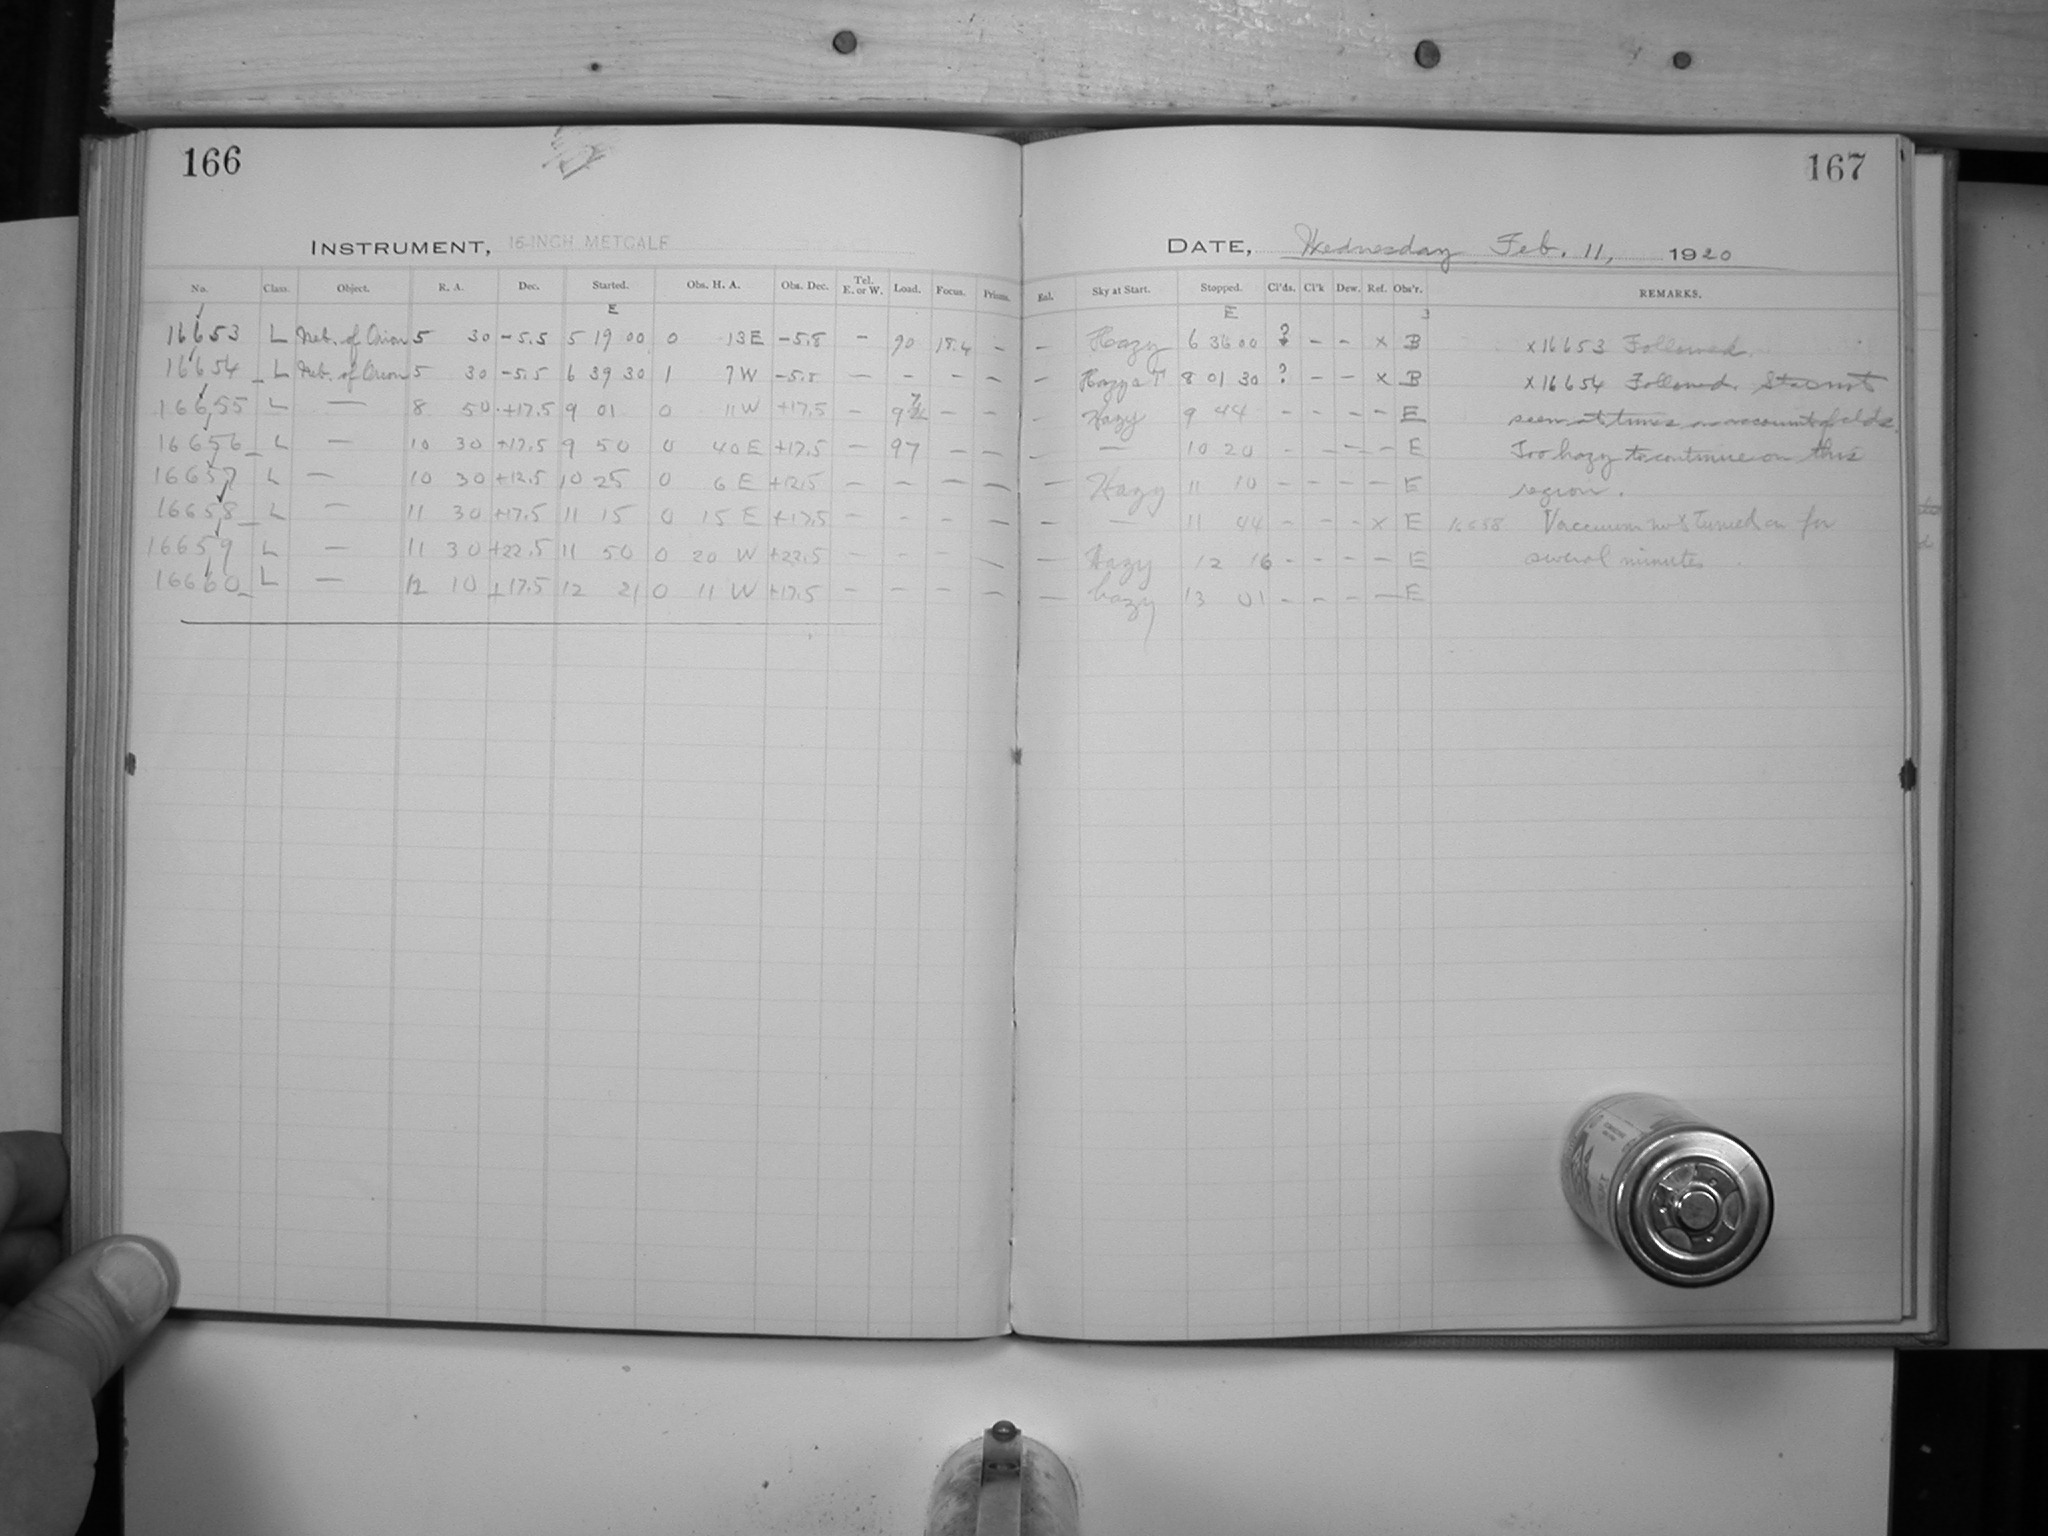 166
INSTRUMENT, 16-INCH METCALF
No. Class. Object. R. A. Dec. Started. Obs. H. A. Obs. Dec. Tel. E. or W. Load. Focus. Prism.
E
16653 L Neb. of Orion 5 30 -5.5 5 19 00 0 13 E -5.8 - 90 18.4 -
16654 L Neb. of Orion 5 30 -5.5 6 39 30 1 7 W -5.5 - - - -
16655 L — 8 50 +17.5 9 01 0 11 W +17.5 - - -
16656 L — 10 30 +17.5 9 50 0 40 E +17.5 - 97 - -
16657 L — 10 30 +12.5 10 25 0 6 E +12.5 - - - -
16658 L — 11 30 +17.5 11 15 0 15 E +17.5 - - - -
16659 L — 11 30 +22.5 11 50 0 20 W +22.5 - - - -
16660 L — 12 10 +17.5 12 21 0 11 W +17.5 - - - -
167
DATE, Wednesday Feb. 11, 1920
Enl. Sky at Start. Stopped. Cl'ds. Cl'k Dew. Ref. Obs'r. REMARKS.
E
- Hazy 6 36 00 ? - - x B x16653 Followed.
- Hazy 8 01 30 ? - - x B x16654 Followed. Star not
- Hazy 9 44 - - - - E seen at times on account of clds.
- — 10 20 - - - - E Too hazy to continue on this
- Hazy 11 10 - - - - E region.
- — 11 44 - - - x E 16658 Vaccuum not turned on for
- Hazy 12 16 - - - - E several minutes.
- hazy 13 01 - - - - E